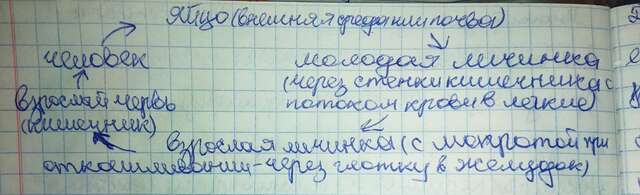 Яйцо (внешняя среда или почва)
человек
молодая личинка
(через стенки кишечника с
потоком крови в легкие)
взрослый червь
(кишечник)
взрослая личинка (с мокротой при
откашливании - через глотку в желудок)